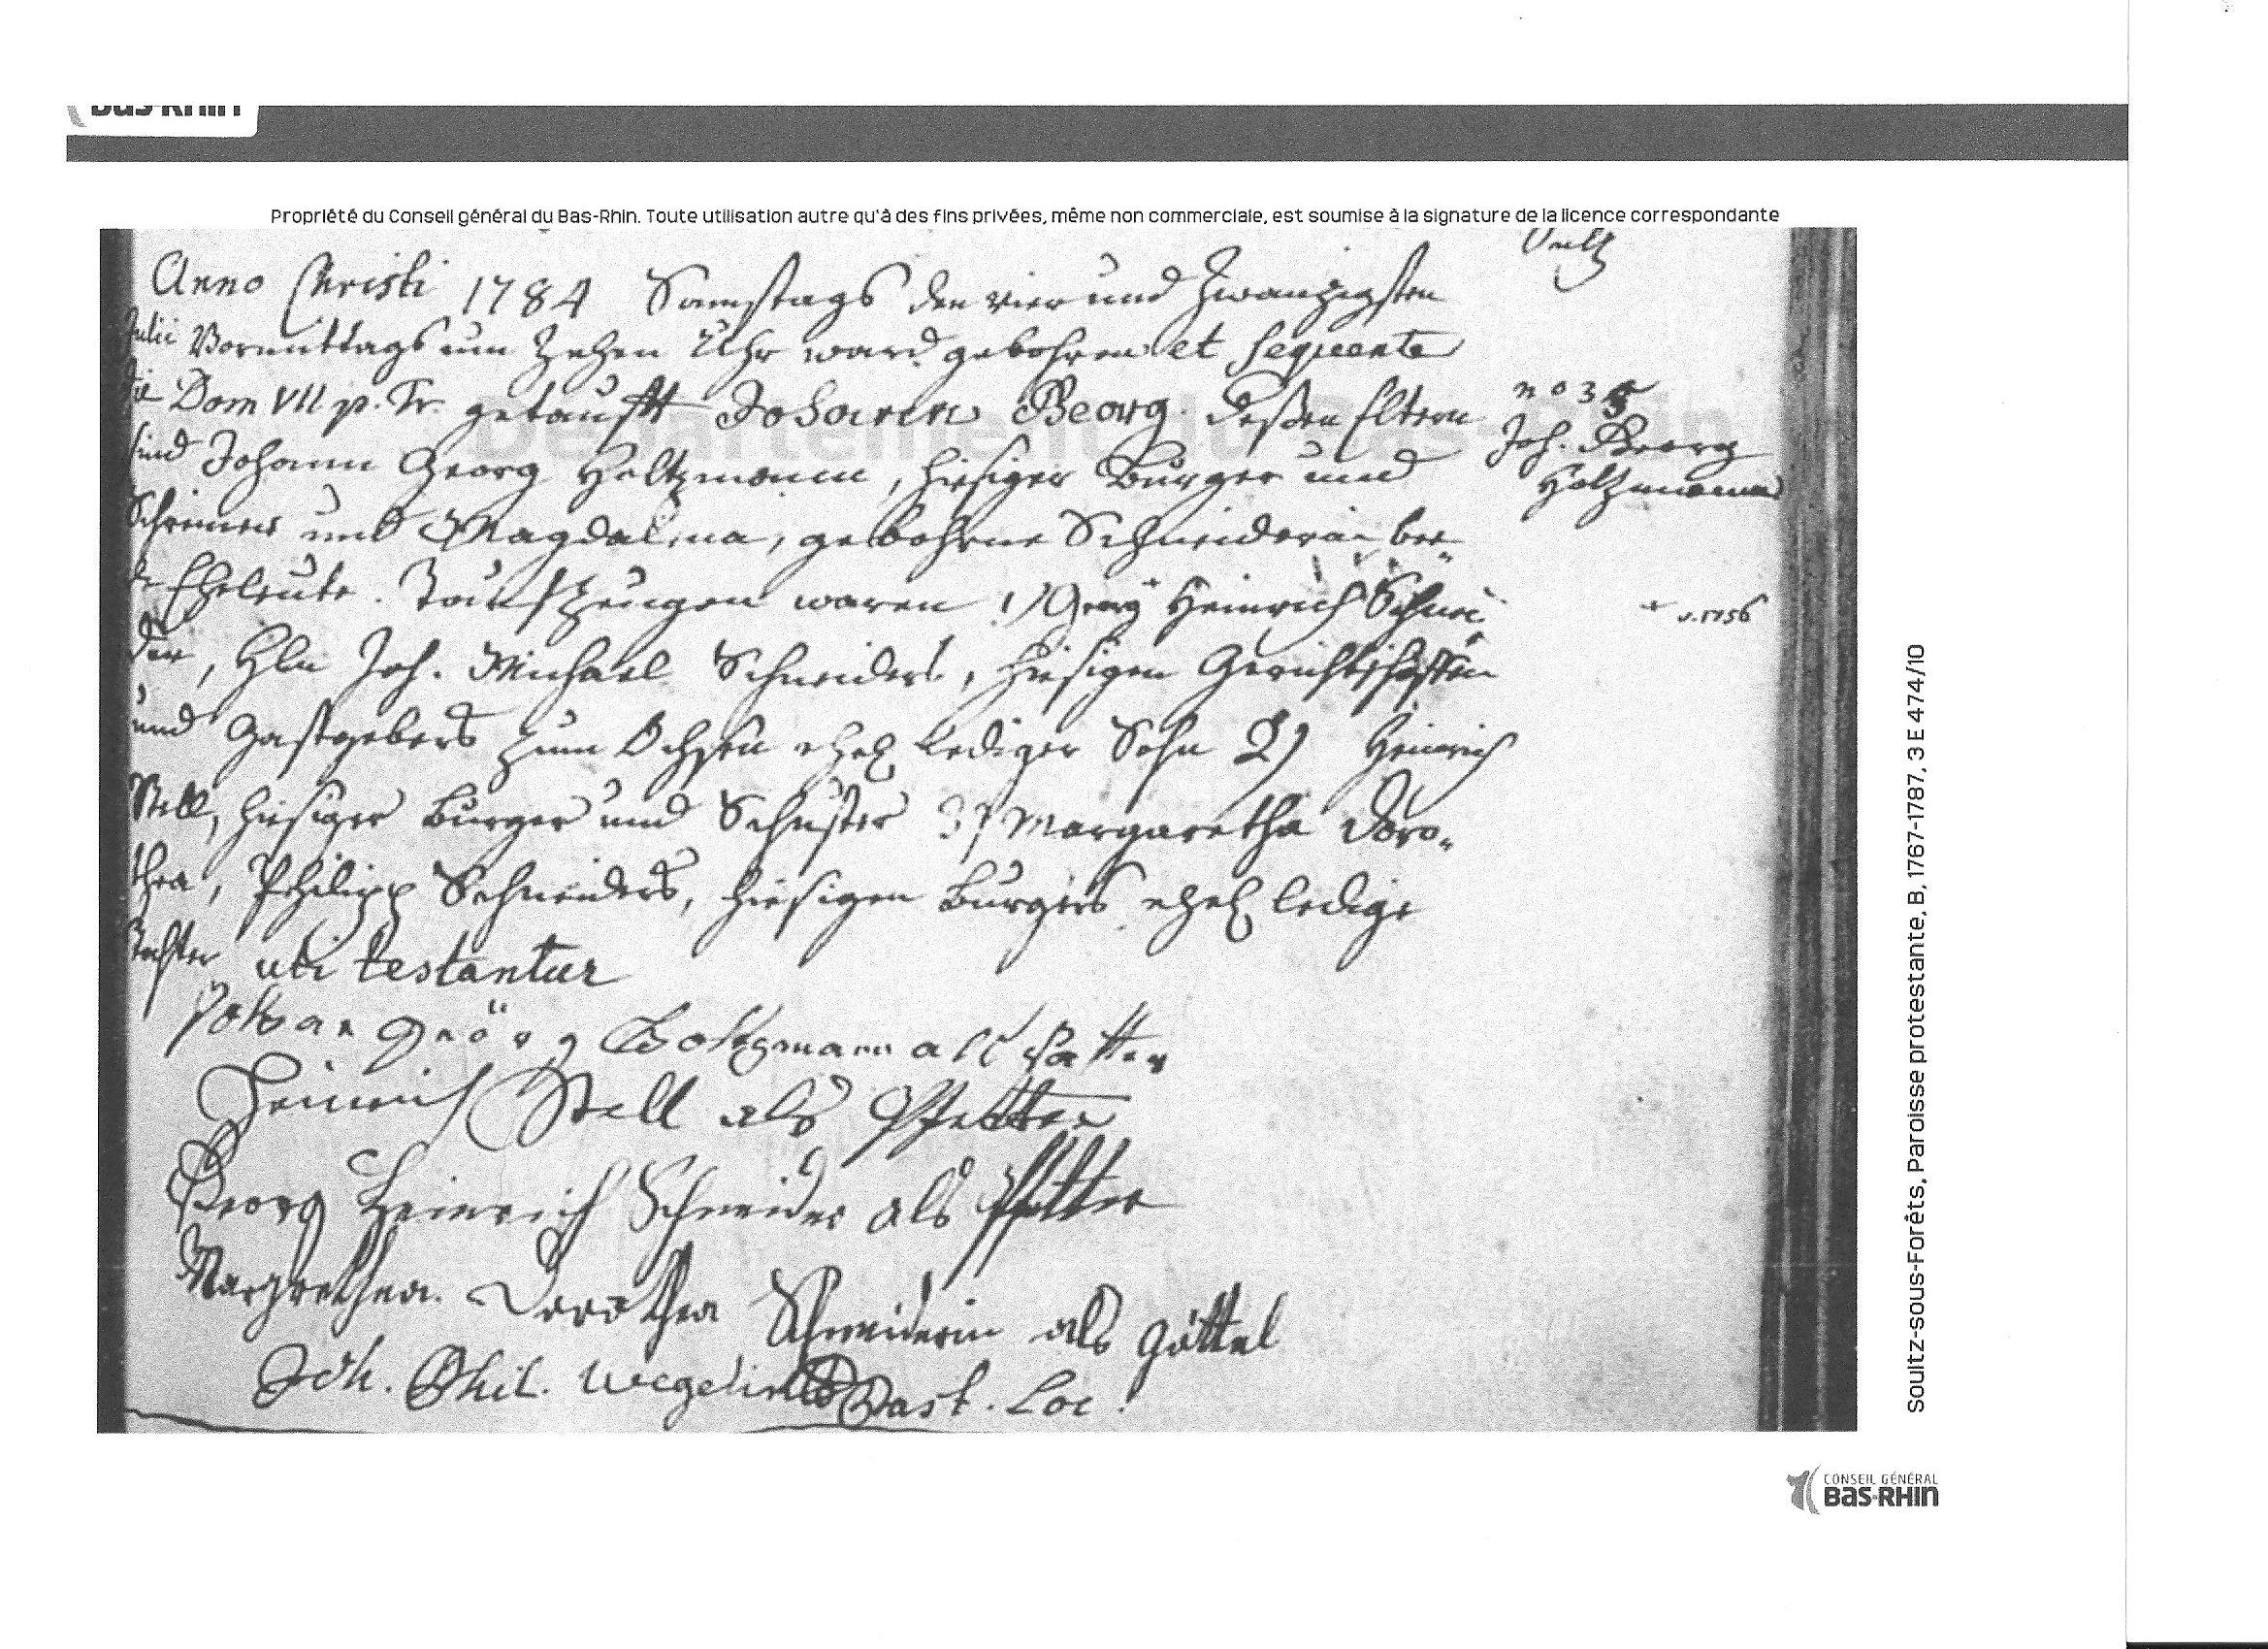 Bas-Rhin
Propriété du Conseil général du Bas-Rhin. Toute utilisation autre qu'à des fins privées, même non commerciale, est soumise à la signature de la licence correspondante
Sultz
Anno Christi 1784 Samstags den vier und zwanzigsten
Julii Vormittags um Zehen Uhr ward gebohren et sequente
die Dom VII p. Tr. getaufft Johann Georg. deßen Eltern
sind Johann Georg Holtzmann, hiesiger Burger und
Schreiner und Magdalena, gebohrne Schneiderin bee-
de Eheleute. Taufzeugen waren 1) Georg Heinrich Schnei-
der, Joh. Michael Schneiders, hiesigen Gerichtschöffen
und Gastgebers zum Ochsen ehel lediger Sohn 2) Heinrich
Stell, hiesiger Burger und Schuster 3) Margaretha Doro-
thea, Philipp Schneiders, hiesigen Burgers ehel ledige
Tochter uti testantur
no 35
Joh. Georg
Holtzmann
Johan Geörg Holtzmann als Vatter
Heinrich Stell als Pfetter
Georg Heinrich Schneider als Pfetter
Margrethea Dorothea Schneiderin als Göttel
Joh. Phil. Wegelin Past. Loc.
Département du Bas-Rhin
Soultz-sous-Forêts, Paroisse protestante, B, 1767-1787, 3 E 474/10
CONSEIL GÉNÉRAL
BAS-RHIN